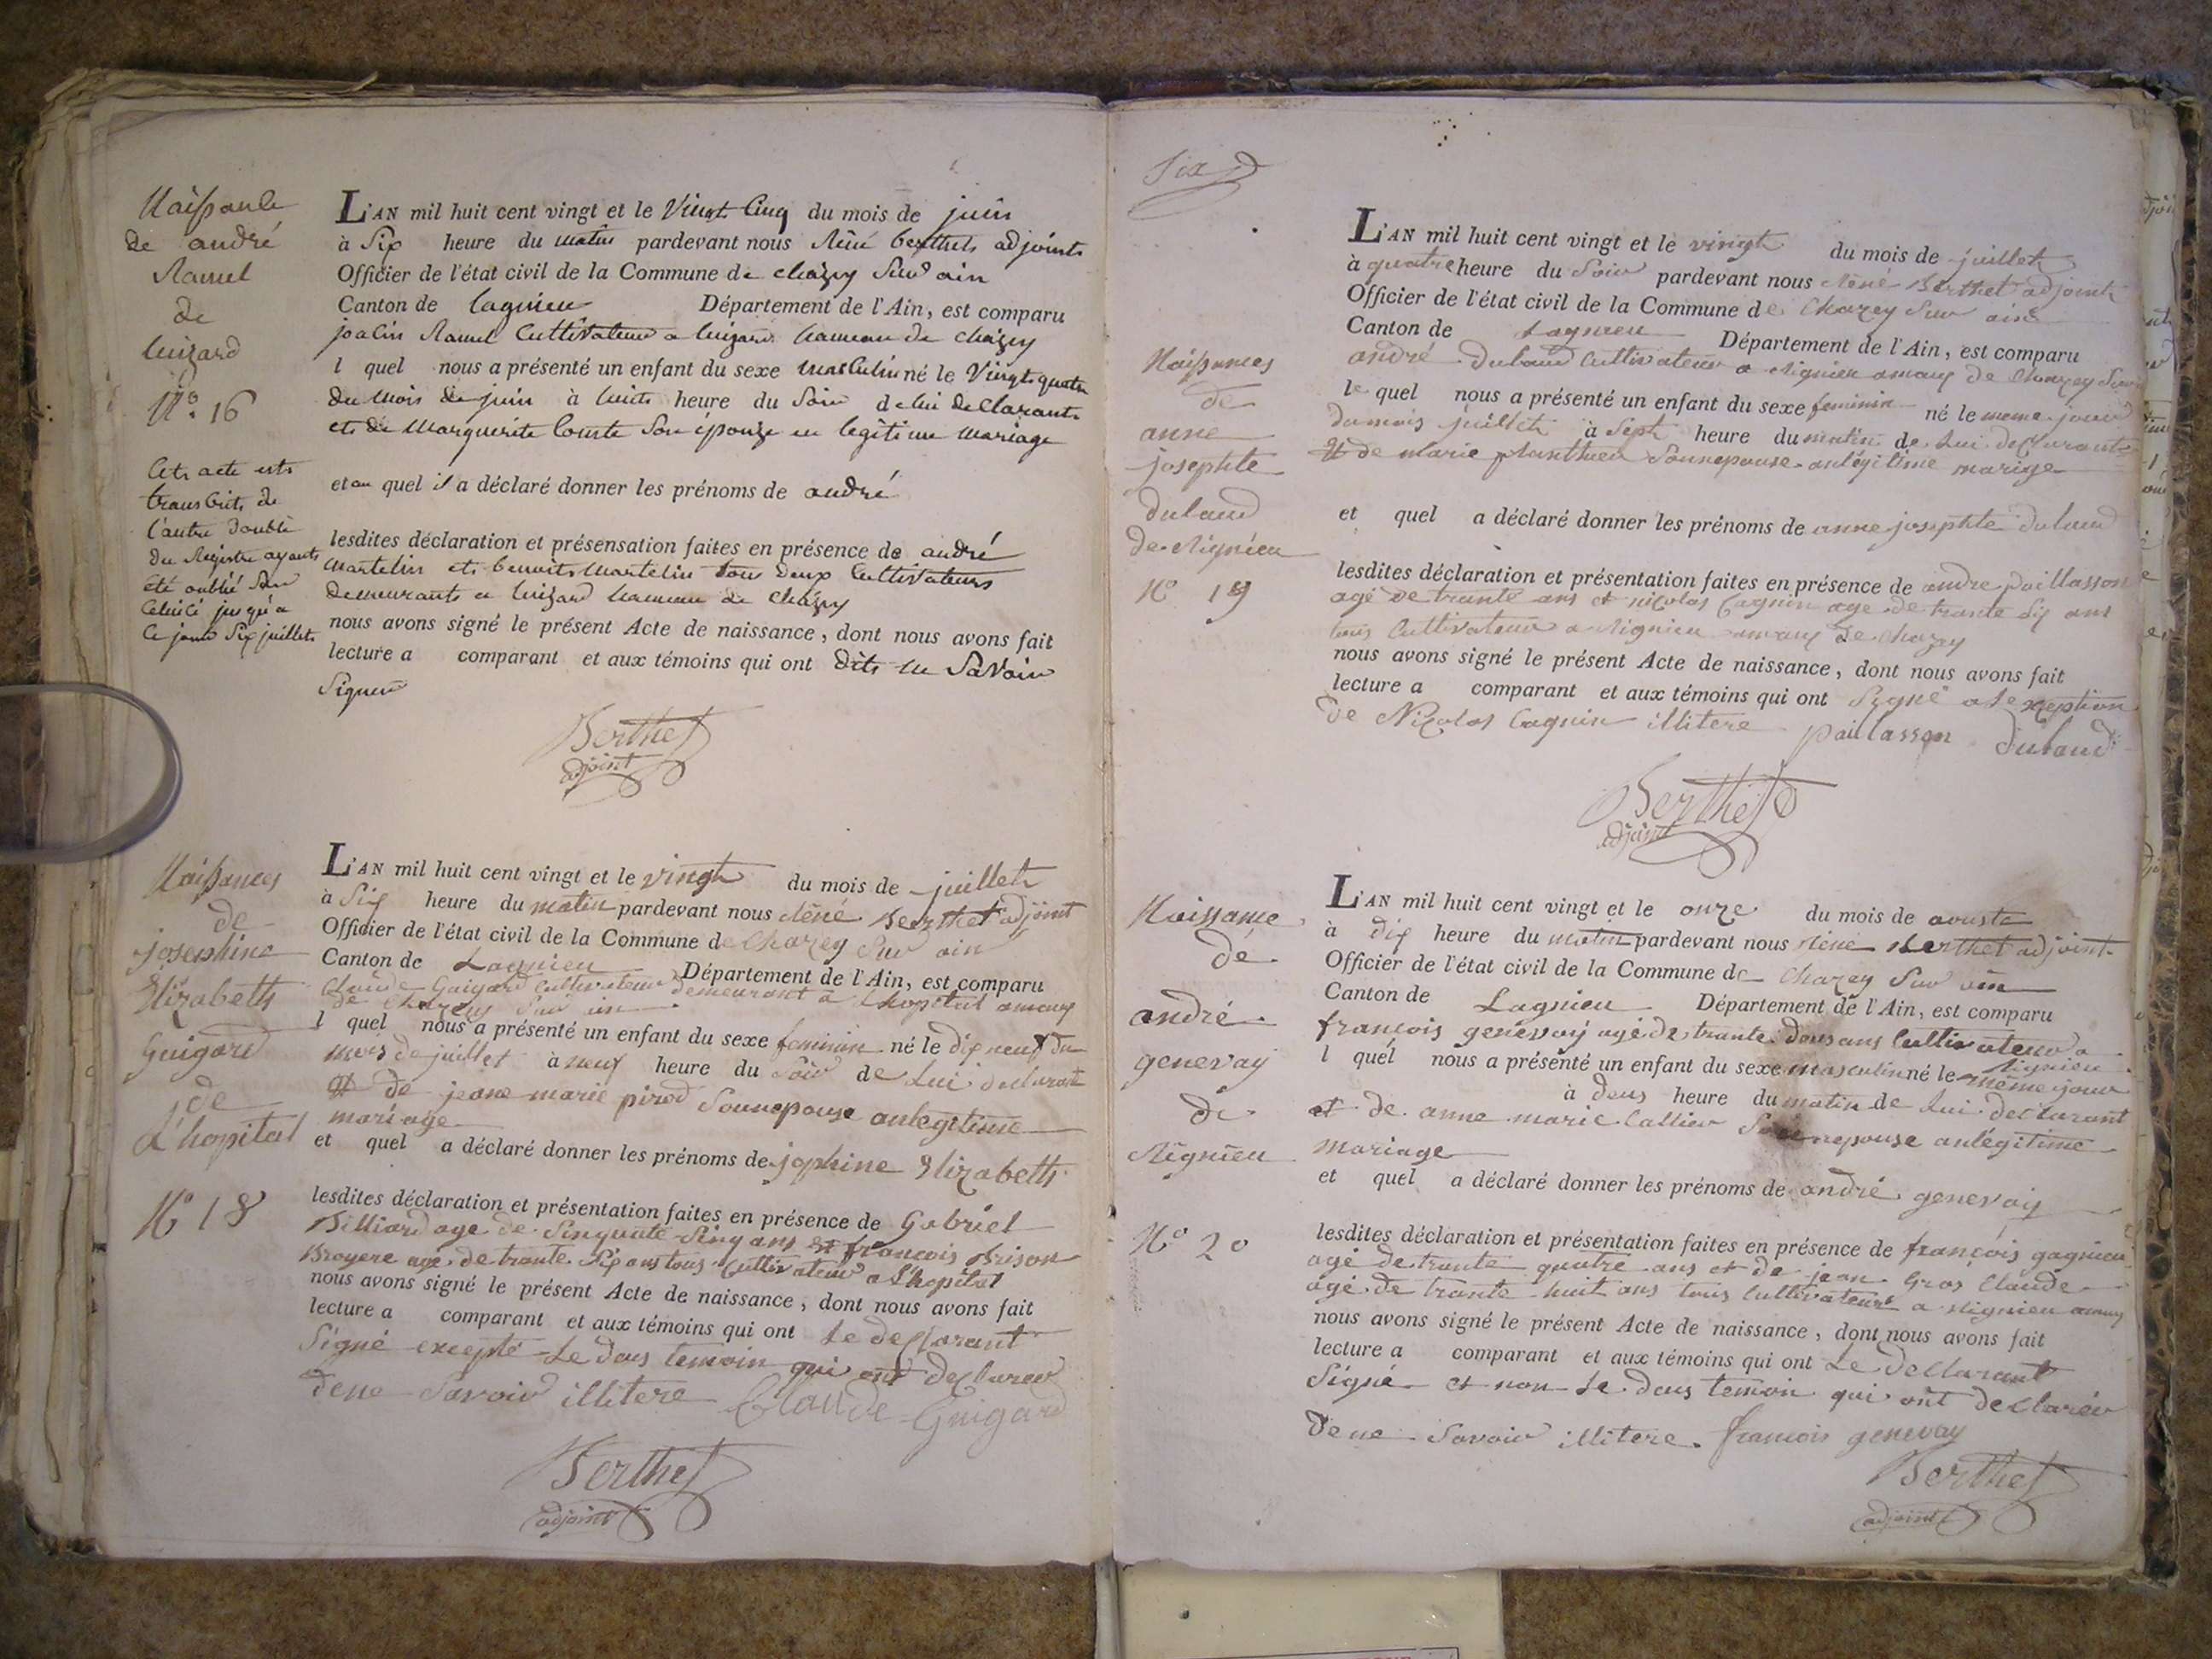 Naissance
de andré
Ramel
de
luizard
N.º 16
Cet acte est
transcrit de
l'autre double
du Registre ayant
été oublié sur
celui ci jusqu'a
ce jour six juillet
L'AN mil huit cent vingt et le Vingt Cinq du mois de juin
à Six heure du matin pardevant nous Réné berthet adjoint
Officier de l'état civil de la Commune de chazey Sur ain
Canton de lagnieu Département de l'Ain, est comparu
Ramel Cultivateur a luizard hameau de chazey
l quel nous a présenté un enfant du sexe masculin né le Vingt quatre
du mois de juin à huit heure du Soir de lui declarant
et de Marguerite Comte Son épouze en legitime mariage
et au quel il a déclaré donner les prénoms de andré
lesdites déclaration et présensation faites en présence de andré
Martelin et benoit Martelin tous deux Cultivateurs
demeurants a luizard hameau de chazey
nous avons signé le présent Acte de naissance, dont nous avons fait
lecture a comparant et aux témoins qui ont dit ne Savoir
Signer
Berthet
adjoint
Naissances
de
josephine
Elizabeth
Guigard
de
L'hopital
Nº 18
L'AN mil huit cent vingt et le vingt du mois de juillet
à Six heure du matin pardevant nous Réné Berthet adjoint
Officier de l'état civil de la Commune de Chazey Sur ain
Canton de Lagnieu Département de l'Ain, est comparu
Claude Guigard Cultivateur demeurant a L'hopital amaux
de Chazey Sur ain
l quel nous a présenté un enfant du sexe feminin né le dix neuf du
mois de juillet à neuf heure du Soir de Lui declarant
et de jeane marie pirod Sonnepouse anlegitime
mariage
et quel a déclaré donner les prénoms de jophine Elizabeth
lesdites déclaration et présentation faites en présence de Gabriel
Billiard age de Sinquate Sinq ans et françois Brison
Broyere age de trante Six ans tous Cultivateur a L'hopital
nous avons signé le présent Acte de naissance, dont nous avons fait
lecture a comparant et aux témoins qui ont Le declarant
Signé excepté Le dous temoin qui ont declarer
dene Savoir illitere Claude Guigard
Berthet
adjoint
Six
Naissances
de
anne
josephte
dubaud
de Rignieu
Nº 19
L'AN mil huit cent vingt et le vingt du mois de juillet
à quatre heure du Soir pardevant nous Réné Berthet adjoint
Officier de l'état civil de la Commune de Chazey Sur ain
Canton de Lagnieu Département de l'Ain, est comparu
andré dubaud Cultivateur a Rignieu amaux de Chazey Sur
le quel nous a présenté un enfant du sexe feminin né le meme jour
du mois juillet à Sept heure du matin de Lui declarant
et de marie Sonnepouse anlégitime mariage
et quel a déclaré donner les prénoms de anne josephte dubaud
lesdites déclaration et présentation faites en présence de andre paillasson
agé de trante ans et nicolas Cagnin age de trante dix ans
tous Cultivateur a Rignieu amaux de Chazey
nous avons signé le présent Acte de naissance, dont nous avons fait
lecture a comparant et aux témoins qui ont Signé a lexception
de Nicolas Cagnin illitere paillasson dubaud
Berthet
adjoint
Naissance
de
andré
genevay
de
Rignieu
Nº 20
L'AN mil huit cent vingt et le onze du mois de aouste
à dix heure du matin pardevant nous Réné Berthet adjoint
Officier de l'état civil de la Commune de Chazey Sur ain
Canton de Lagnieu Département de l'Ain, est comparu
françois genevay agé de trante dous ans Cultivateur a
Rignieu
l quel nous a présenté un enfant du sexe masculin né le même jour
à deus heure du matin de Lui declarant
et de anne marie Callier Sonnepouse anlégitime
mariage
et quel a déclaré donner les prénoms de andré genevay
lesdites déclaration et présentation faites en présence de françois gagnieu
agé de trante quatre ans et de jean Gros Claude
agé de trante huit ans tous Cultivateurs a Rignieu amaux
nous avons signé le présent Acte de naissance, dont nous avons fait
lecture a comparant et aux témoins qui ont Le declarant
Signé et non Le dous temoin qui ont declarér
dene Savoir illitere. francois genevay
Berthet
adjoint